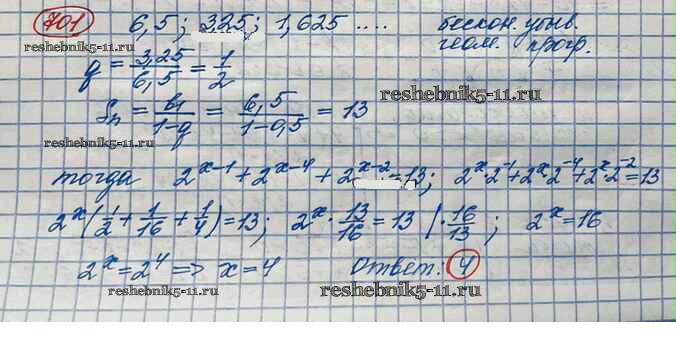 701 6,5; 3,25; 1,625 .... бескон. убыв.
геом. прогр.
reshebnik5-11.ru
q = 3,25/6,5 = 1/2
reshebnik5-11.ru
Sn = b1/(1-q) = 6,5/(1-0,5) = 13
reshebnik5-11.ru
тогда 2^(x-1) + 2^(x-4) + 2^(x-2) = 13; 2^x·2^(-1) + 2^x·2^(-4) + 2^x·2^(-2) = 13
2^x(1/2 + 1/16 + 1/4) = 13; 2^x · 13/16 = 13 |· 16/13; 2^x = 16
2^x = 2^4 => x = 4 Ответ: 4
reshebnik5-11.ru reshebnik5-11.ru